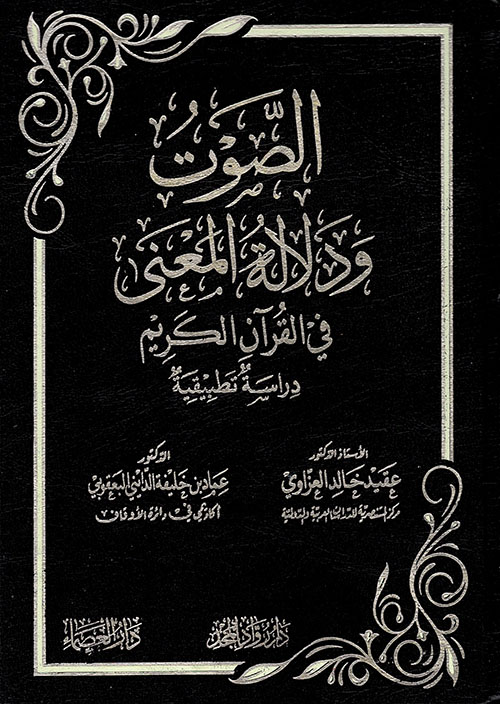 الصَّوْتُ
وَدَلَالَةُ المَعْنَى
فِي القُرْآنِ الكَرِيمِ
دِرَاسَةٌ تَطْبِيقِيَّةٌ
الأستاذ الدكتور
عقيد خالد العزاوي
مركز المستنصرية للدراسات العربية والدولية
الدكتور
عماد بن خليفة الدايني البعقوبي
أكاديمي في دائرة الأوقاف
دار رواد المجد
دار العصماء